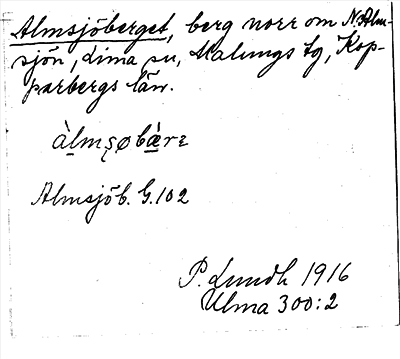 Almsjöberget, berg norr om N. Alm-
sjön, Lima sn, Malungs tg, Kop-
parbergs län.
àlmşøbærɛ
Almsjöb. G. 102
P. Lundh 1916
Ulma 300:2